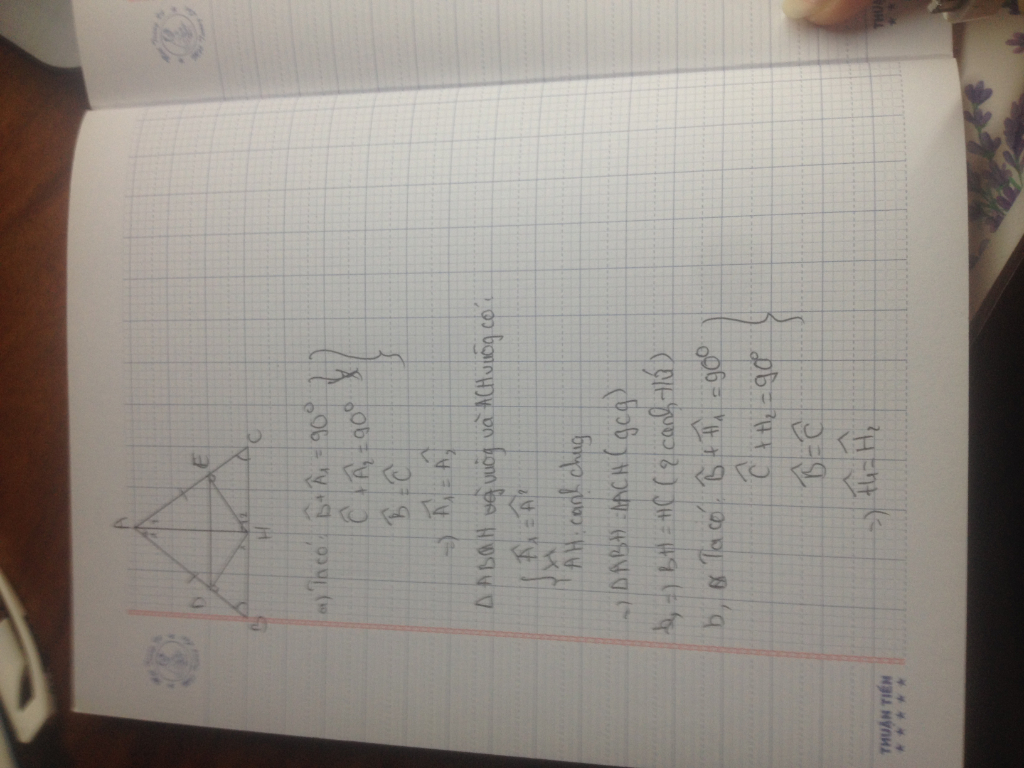 A
D
E
B
H
C
a) Ta có: B̂ + Â₁ = 90°
Ĉ + Â₂ = 90°
B̂ = Ĉ
=) Â₁ = Â₂
Δ ABH vuông và ACH vuông có:
Â₁ = Â₂
AH: cạnh chung
=) ΔABH = ΔACH (gcg)
=) BH = HC (2 cạnh t/ứ)
b, Ta có: B̂ + Ĥ₁ = 90°
Ĉ + H₂ = 90°
B̂ = Ĉ
=) Ĥ₁ = Ĥ₂
THUẬN TIẾN